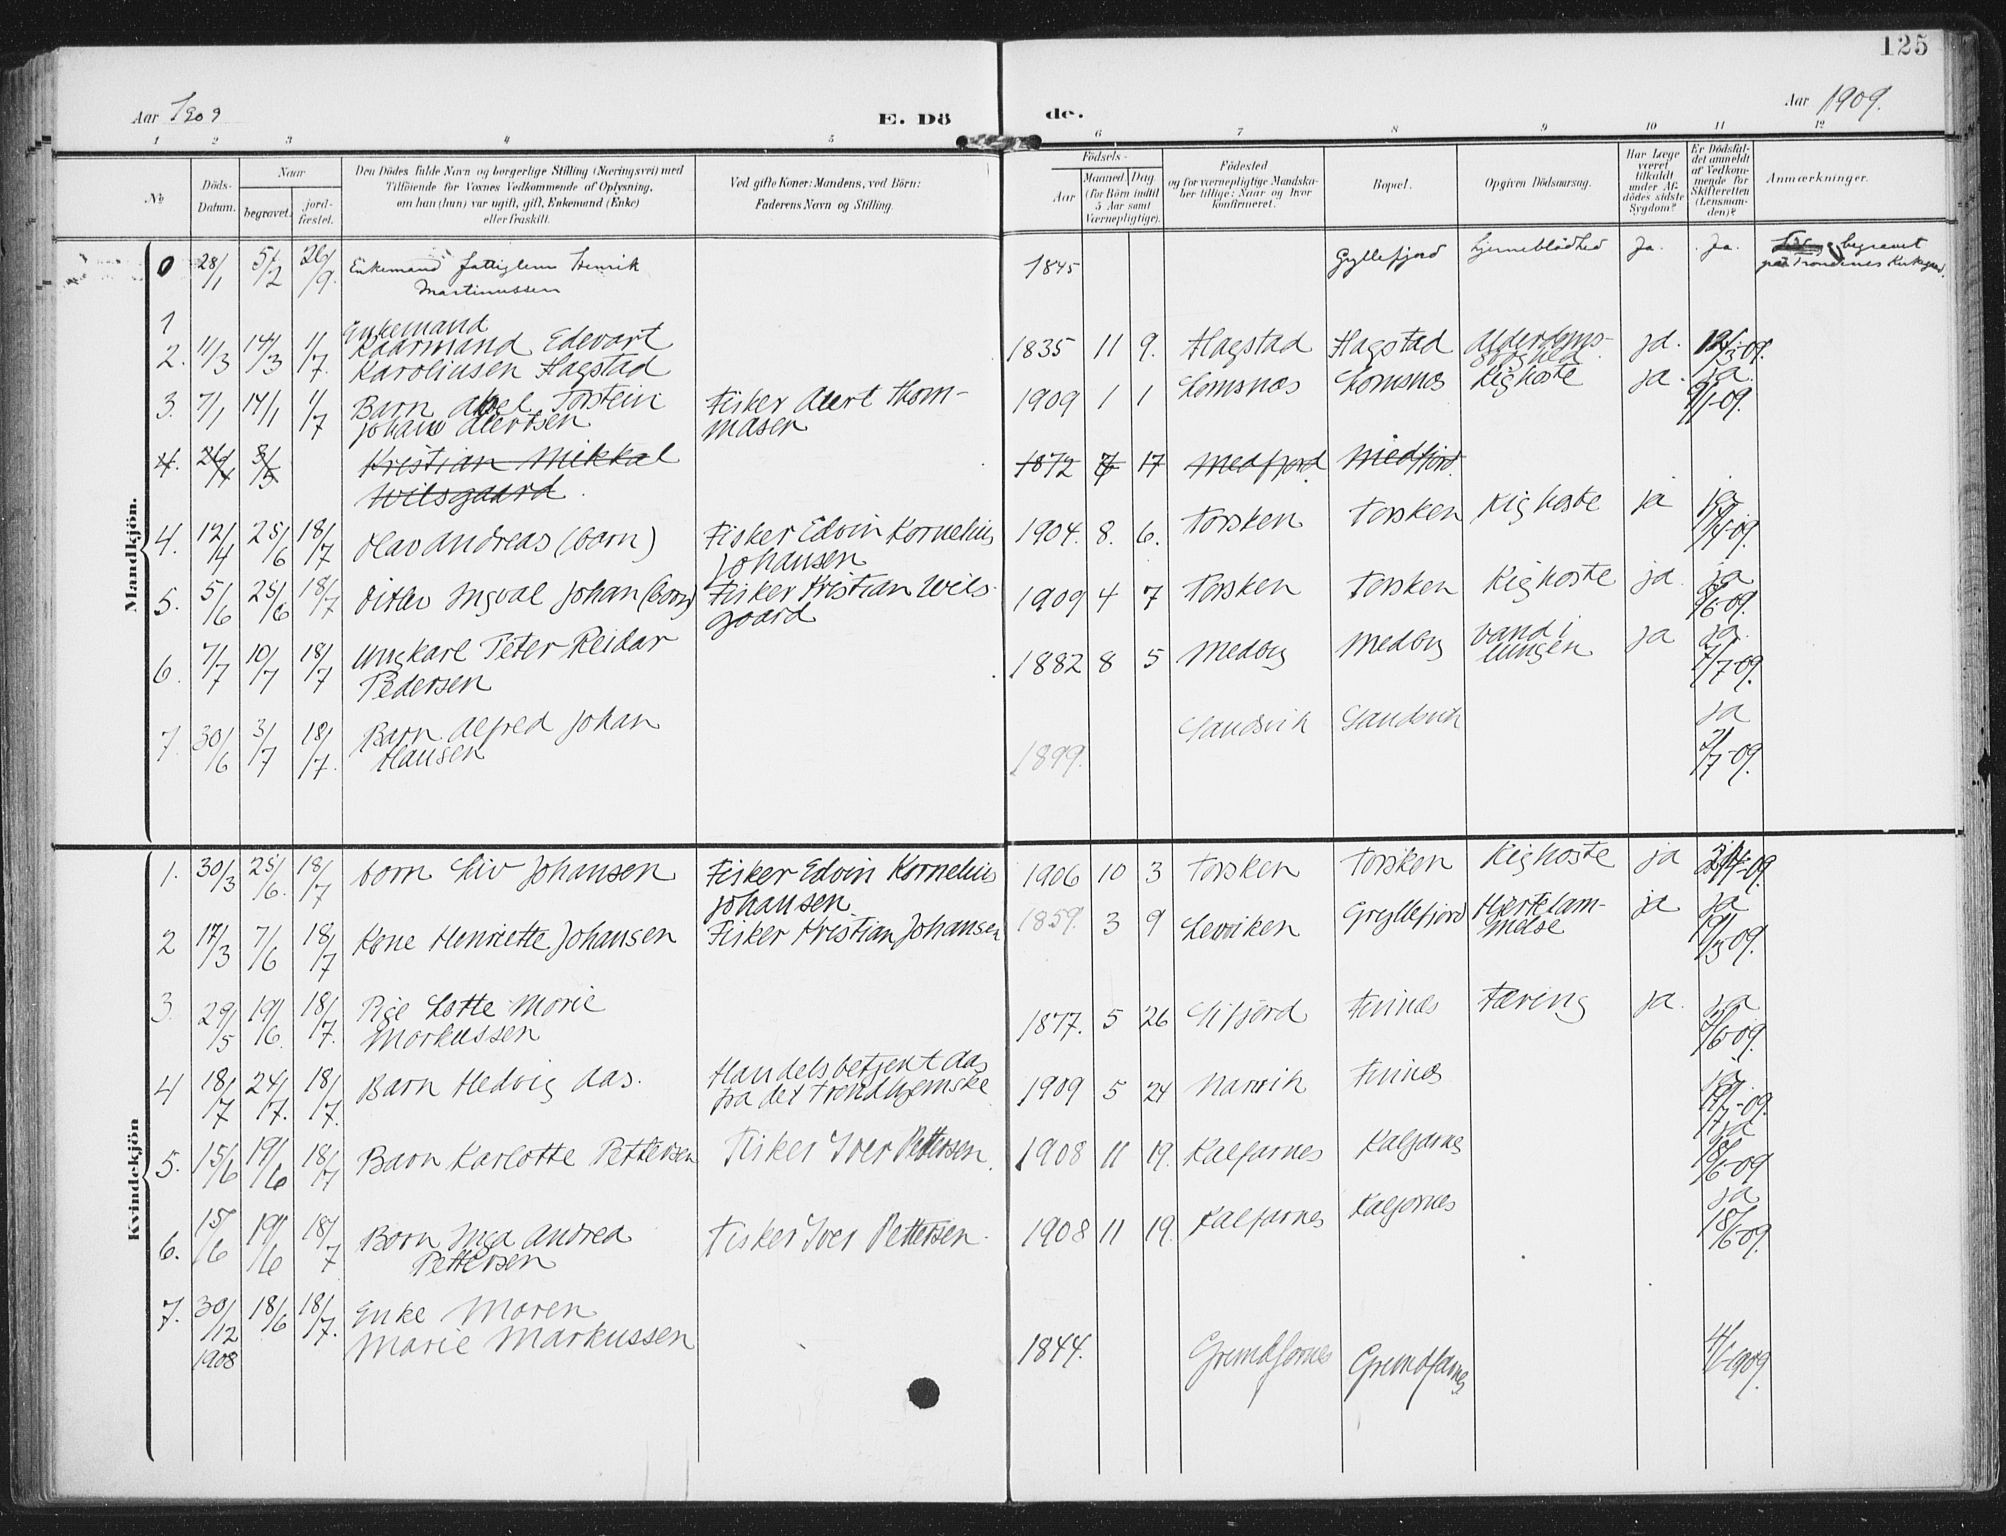 125
Aar 1909
E. Dö
de.
Aar 1909.
1 2 3 4 5 6 7 8 9 10 11 12
№
Döds-
Datum.
Naar
begravet.
jord-
fæstet.
Den Dödes fulde Navn og borgerlige Stilling (Næringsvei) med
Tilföiende for Voxnes Vedkommende af Oplysning,
om han (hun) var ugift, gift, Enkemand (Enke)
eller fraskilt.
Ved gifte Koner: Mandens, ved Börn:
Faderens Navn og Stilling.
Födsels-
Aar
Maaned Dag
(for Börn indtil
5 Aar samt
Værnepligtige).
Födested
og for værnepligtige Mandska-
ber tillige: Naar og hvor
konfirmeret.
Bopæl.
Opgiven Dödsaarsag.
Har Læge
været
tilkaldt
under Af-
dödes sidste
Sygdom?
Er Dödsfal-
det anmeldt
af Vedkom-
mende for
Skifteretten
(Lensman-
den)?
Anmærkninger.
Mandkjön.
0 28/1 5/2 26/9 Enkemand fattiglem Henrik
Martinussen
1845 Gryllefjord hjerneblödhed Ja. Ja. begravet
paa Trondenes Kirkegaard.
1
2. 11/3 14/3 1/7. Enkemand
Kaarmand Edevart
Karoliusen Hagstad
1835 11 9. Hagstad Hagstad Alderdoms-
ja. 12/3-09.
3. 7/1 14/1 1/7 Barn Aksel Torstein
Johan Alertsen
Fisker Alert Thom-
masen
1909 1 1 Lomsnæs Lomsnæs Kighoste ja. ja
9/1-09.
4. 3/5 Kristian Mikkal
Wilsgaard
1872 17 Medfjord Medfjord.
4. 12/4 25/6 18/7 Olav Andreas (barn)
Fisker Edvin Kornelius
Johansen
1904. 8. 6. Torsken Torsken Kighoste ja
5. 5/6 25/6 18/7 Ditlev Ingval Johan (barn)
Fisker Kristian Wils-
gaard
1909 4 7 Torsken Torsken Kighoste ja. ja
6. 7/7 10/7 18/7 Ungkarl Peter Reidar
Pedersen
1882 8 5 Medby Medby Vand i
lungen
ja ja
7/7-09.
7. 30/6 3/7 18/7. Barn Alfred Johan
Hansen
1899. Sandsvik Sandsvik ja
Kvindekjön
1. 30/3 25/6. 18/7 barn Liv Johansen
Fisker Edvin Kornelius
Johansen
1906 10 3 Torsken Torsken Kighoste ja
2 17/3 7/6 18/7 Kone Henriette Johansen
Fisker Kristian Johansen
1859. 3 9 Leviken Gryllefjord Hjertelam-
melse
ja ja
3. 29/5 19/6. 18/7. Pige Lotte Marie
Markussen
1877. 5 26 Sifjord Finnæs Tæring ja. ja
4 18/7 24/7. 18/7. Barn Hedvig Aas.
Handelsbetjent Aas
fra det Trondhjemske
1909 5 24 Narvik Finnæs
5. 15/6 19/6 18/7 Barn Karlotte Pettersen
Fisker Iver Pettersen.
1908 11 19. Kalfarnes Kalfarnes ja
18/6-09
6. 15/6 19/6 18/7 Barn Inga Andrea
Pettersen
Fisker Iver Pettersen.
1908 11 19. Kalfarnes Kalfarnes ja
18/6-09.
7. 30/12
1908
18/6 18/7. Enke Maren
Marie Markussen
1844. Grundfarnes Grundfarnes 4/1-1909.